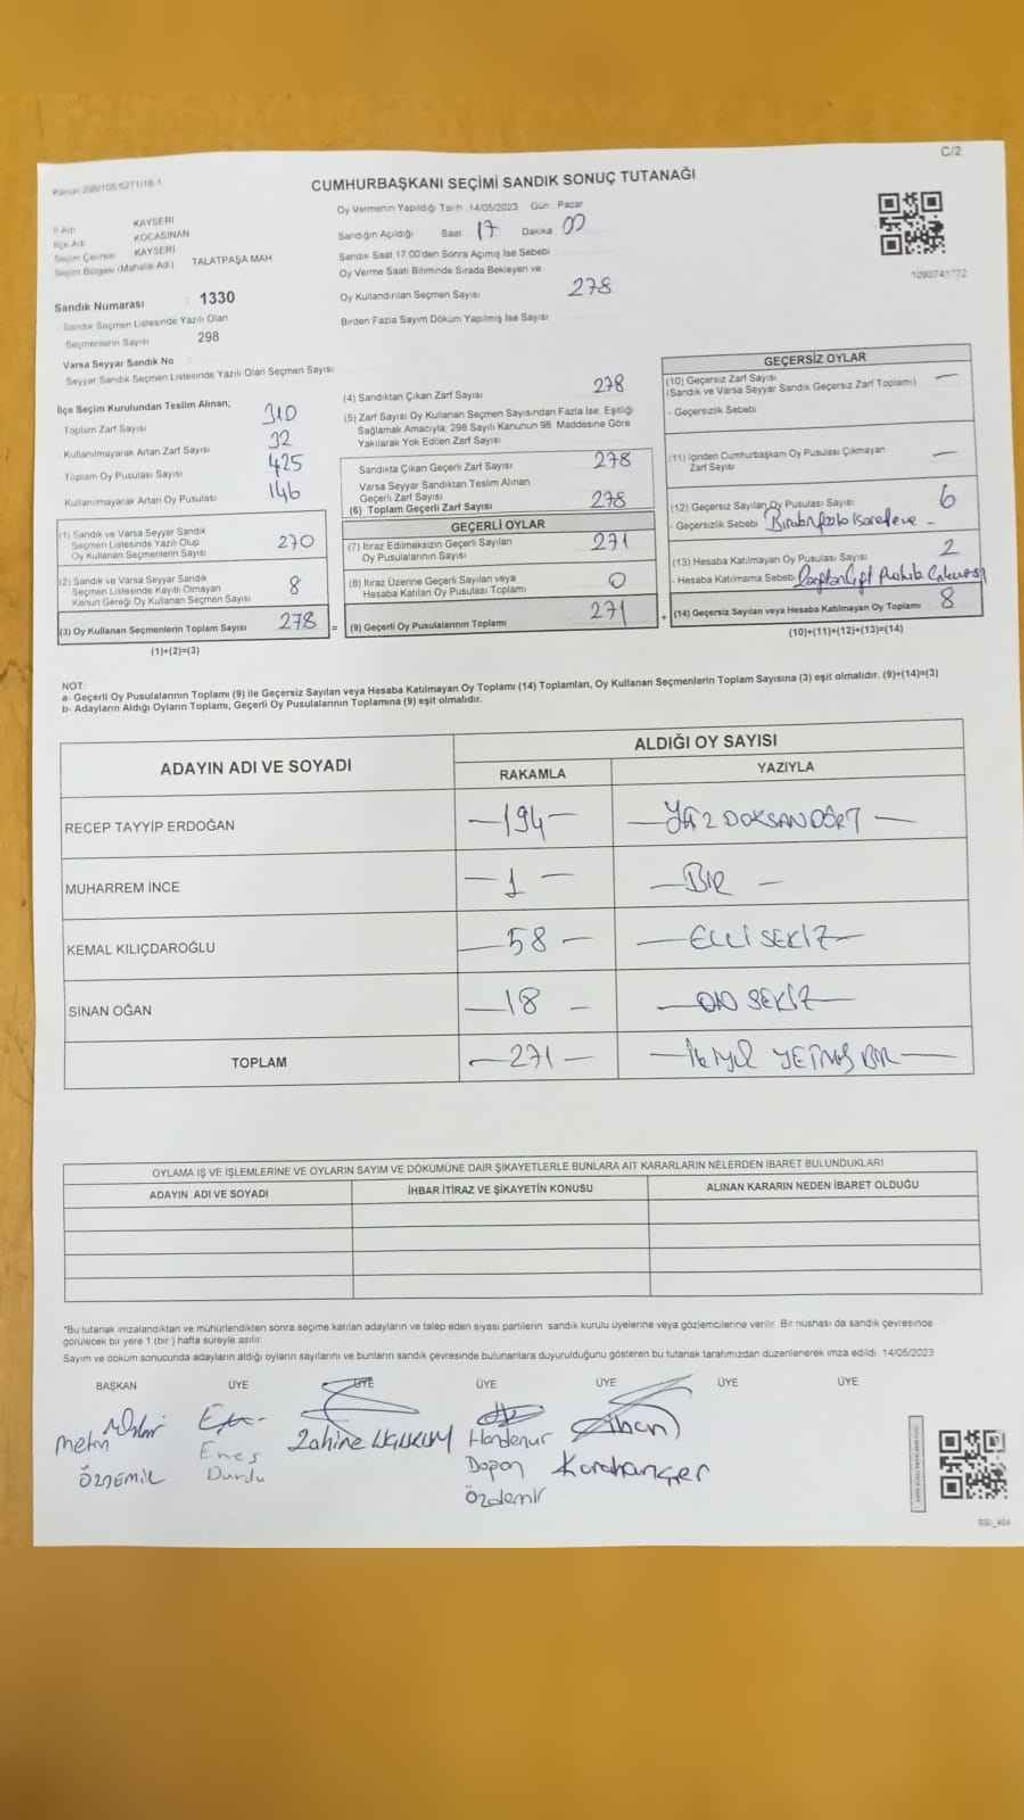 C/2
CUMHURBAŞKANI SEÇİMİ SANDIK SONUÇ TUTANAĞI
İl Adı KAYSERİ
İlçe Adı KOCASİNAN
Seçim Çevresi KAYSERİ
Seçim Bölgesi (Mahalle Adı) TALATPAŞA MAH
Sandık Numarası 1330
Sandık Seçmen Listesinde Yazılı Olan
Seçmenlerin Sayısı 298
Varsa Seyyar Sandık No
Seyyar Sandık Seçmen Listesinde Yazılı Olan Seçmen Sayısı
Oy Vermenin Yapıldığı Tarih 14/05/2023 Gün Pazar
Sandığın Açıldığı Saat 17 Dakika 00
Sandık Saat 17.00'den Sonra Açmış İse Sebebi
Oy Verme Saati Bitiminde Sırada Bekleyen ve
Oy Kullandırılan Seçmen Sayısı 278
Birden Fazla Sayım Döküm Yapılmış İse Sayısı
İlçe Seçim Kurulundan Teslim Alınan;
Toplam Zarf Sayısı 310
Kullanılmayarak Artan Zarf Sayısı 32
Toplam Oy Pusulası Sayısı 425
Kullanılmayarak Artan Oy Pusulası 146
(1) Sandık ve Varsa Seyyar Sandık
Seçmen Listesinde Yazılı Olup
Oy Kullanan Seçmenlerin Sayısı 270
(2) Sandık ve Varsa Seyyar Sandık
Seçmen Listesinde Kayıtlı Olmayan
Kanun Gereği Oy Kullanan Seçmen Sayısı 8
(3) Oy Kullanan Seçmenlerin Toplam Sayısı 278 =
(1)+(2)=(3)
(4) Sandıktan Çıkan Zarf Sayısı 278
(5) Zarf Sayısı Oy Kullanan Seçmen Sayısından Fazla İse, Eşitliği
Sağlamak Amacıyla; 298 Sayılı Kanunun 98. Maddesine Göre
Yakılarak Yok Edilen Zarf Sayısı
Sandıkta Çıkan Geçerli Zarf Sayısı 278
Varsa Seyyar Sandıktan Teslim Alınan
Geçerli Zarf Sayısı
(6) Toplam Geçerli Zarf Sayısı 278
GEÇERLİ OYLAR
(7) İtiraz Edilmeksizin Geçerli Sayılan
Oy Pusulalarının Sayısı 271
(8) İtiraz Üzerine Geçerli Sayılan veya
Hesaba Katılan Oy Pusulası Toplamı 0
(9) Geçerli Oy Pusulalarının Toplamı 271 +
GEÇERSİZ OYLAR
(10) Geçersiz Zarf Sayısı —
(Sandık ve Varsa Seyyar Sandık Geçersiz Zarf Toplamı)
- Geçersizlik Sebebi
(11) İçinden Cumhurbaşkanı Oy Pusulası Çıkmayan —
Zarf Sayısı
(12) Geçersiz Sayılan Oy Pusulası Sayısı 6
- Geçersizlik Sebebi
(13) Hesaba Katılmayan Oy Pusulası Sayısı 2
- Hesaba Katılmama Sebebi
(14) Geçersiz Sayılan veya Hesaba Katılmayan Oy Toplamı 8
(10)+(11)+(12)+(13)=(14)
NOT:
a- Geçerli Oy Pusulalarının Toplamı (9) ile Geçersiz Sayılan veya Hesaba Katılmayan Oy Toplamı (14) Toplamları, Oy Kullanan Seçmenlerin Toplam Sayısına (3) eşit olmalıdır. (9)+(14)=(3)
b- Adayların Aldığı Oyların Toplamı, Geçerli Oy Pusulalarının Toplamına (9) eşit olmalıdır.
ADAYIN ADI VE SOYADI ALDIĞI OY SAYISI
RAKAMLA YAZIYLA
RECEP TAYYİP ERDOĞAN —194— —YÜZ DOKSAN DÖRT—
MUHARREM İNCE —1— —BİR—
KEMAL KILIÇDAROĞLU —58— —ELLİ SEKİZ—
SİNAN OĞAN —18— —ON SEKİZ—
TOPLAM —271— —İKİ YÜZ YETMİŞ BİR—
OYLAMA İŞ VE İŞLEMLERİNE VE OYLARIN SAYIM VE DÖKÜMÜNE DAİR ŞİKAYETLERLE BUNLARA AİT KARARLARIN NELERDEN İBARET BULUNDUKLARI
ADAYIN ADI VE SOYADI İHBAR İTİRAZ VE ŞİKAYETİN KONUSU ALINAN KARARIN NEDEN İBARET OLDUĞU
*Bu tutanak imzalandıktan ve mühürlendikten sonra seçime katılan adayların ve talep eden siyasi partilerin sandık kurulu üyelerine veya gözlemcilerine verilir. Bir nüshası da sandık çevresinde
görülecek bir yere 1 (bir) hafta süreyle asılır.
Sayım ve döküm sonucunda adayların aldığı oyların sayılarını ve bunların sandık çevresinde bulunanlara duyurulduğunu gösteren bu tutanak tarafımızdan düzenlenerek imza edildi. 14/05/2023
BAŞKAN ÜYE ÜYE ÜYE ÜYE ÜYE ÜYE
Metin
Enes
Durdu
Zahine
Özdemir